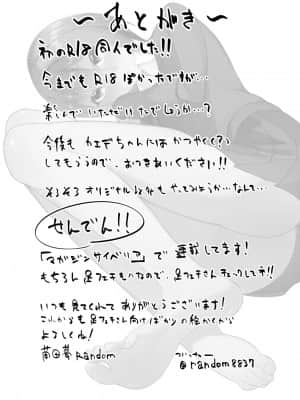 ～あとがき～
初のR18同人でした!!
今までもR18ばかったですが…
楽しんでいただけたでしょうか…?
今後もカエデちゃんにはかつやく(?)
してもらうので、おつきあいください!!
そろそろオリジナル以外もやってみようか…なんて…
せんでん!!
「マガジンサイベリア」で連載してます!
もちろん足フェチものなので、足フェチさんチェックしてネ!!
いつも見てくれてありがとうございます!
これからも足フェチさん向けばかりの絵かくから
よろしくね!
Random
@random8837